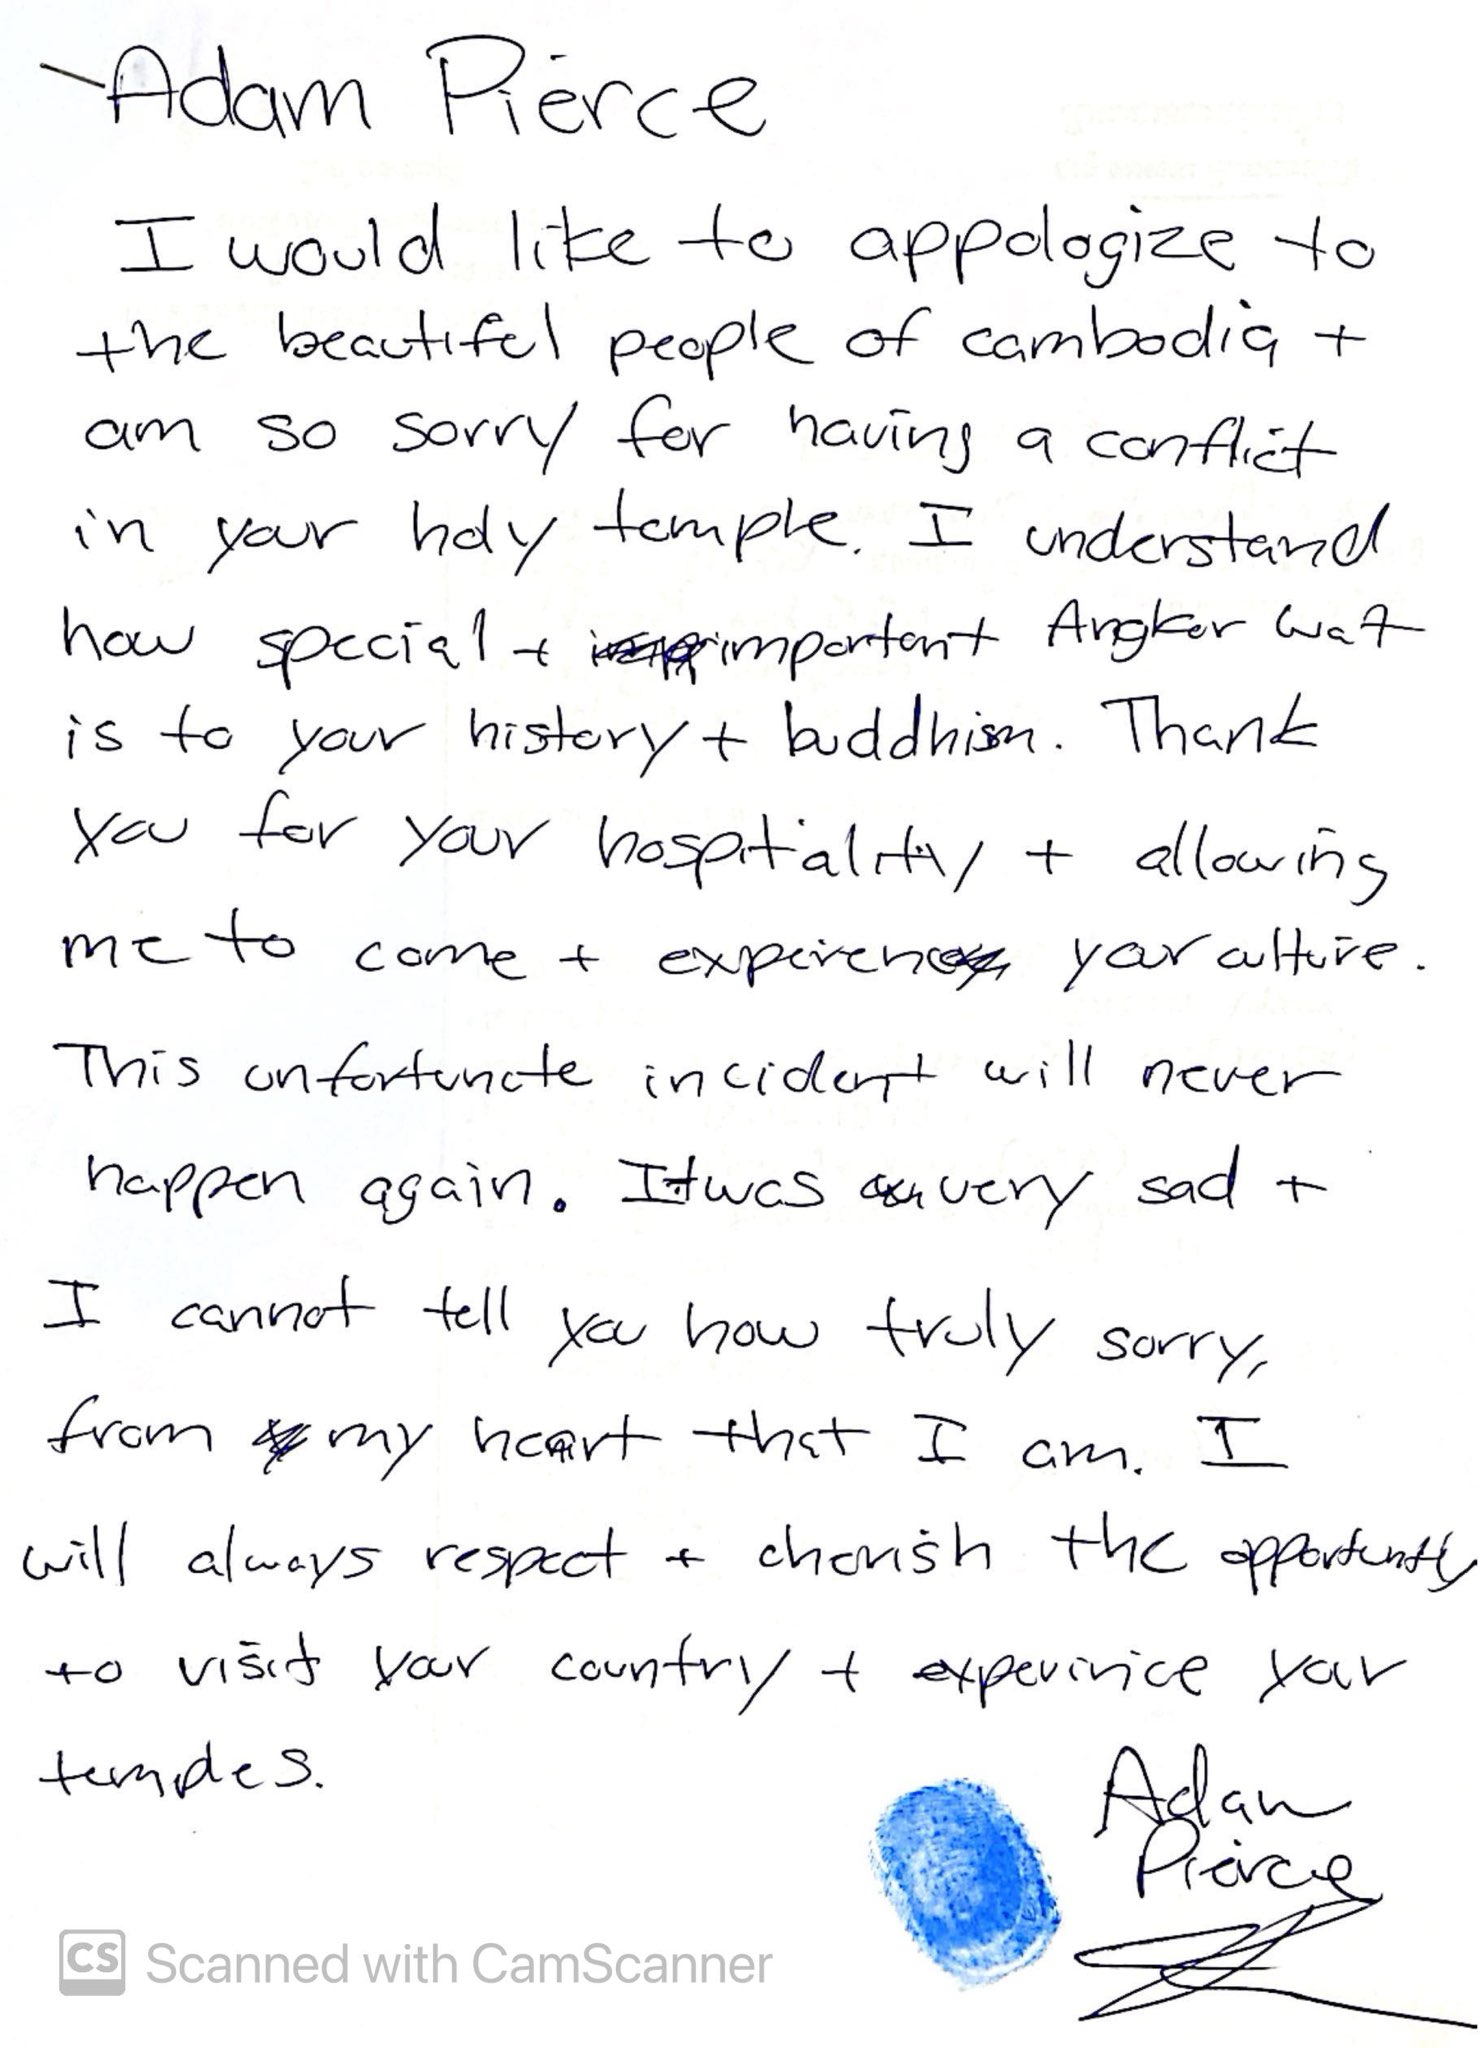 Adam Pierce
I would like to appologize to
the beautiful people of cambodia +
am so sorry for having a conflict
in your holy temple. I understand
how special + important Angkor Wat
is to your history + buddhism. Thank
you for your hospitiality + allowing
me to come + experience your culture.
This unfortunate incident will never
happen again. It was very sad +
I cannot tell you how truly sorry,
from my heart that I am. I
will always respect + cherish the opportunity
to visit your country + experinice your
temples.
Adam
Pierce
CS Scanned with CamScanner